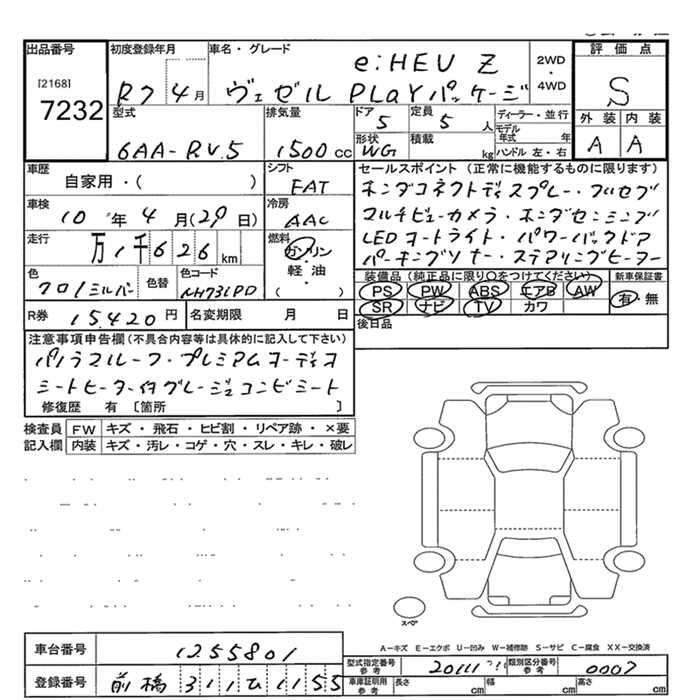 出品番号
[2168]
7232
初度登録年月
R7年4月
車名・グレード
e:HEV Z
ヴェゼル PLaYパッケージ
2WD
・
4WD
評価点
S
外装 内装
A A
型式
6AA-RV5
排気量
1500 cc
ドア
5
定員
5人
形状
WG
積載
kg
ディーラー・並行
モデル年式 年
ハンドル 左・右
車歴
自家用・( )
シフト
FAT
車検
10年4月(29日)
冷房
AAC
走行
万1千626km
燃料
ガソリン
・
軽・油
( )
色
クロ/シルバー
色替
色コード
NH731PD
R券 15,420円
名変期限 月 日
セールスポイント (正常に機能するものに限ります)
ホンダコネクトディスプレー・フルセグ
マルチビューカメラ・ホンダセンシング
LEDヘッドライト・パワーバックドア
パーキングソナー・ステアリングヒーター
装備品 (純正品に限り○をつけてください)
新車保証書
PS PW ABS エアB AW
SR ナビ TV カワ
有・無
後日品
注意事項申告欄(不具合内容等は具体的に記入して下さい)
パノラマルーフ・プレミアムオーディオ
シートヒーター付グレージュコンビシート
修復歴 有 〔箇所
検査員記入欄
FW キズ・飛石・ヒビ割・リペア跡・×要
内装 キズ・汚レ・コゲ・穴・スレ・キレ・破レ
スペア
A-キズ E-エクボ U-凹み W-補修跡 S-サビ C-腐食 XX-交換済
車台番号 1255801
登録番号 前橋 311 ひ 1155
型式指定番号 参考 20111
類別区分番号 参考 0007
車庫証明用 参考 長さ cm 幅 cm 高さ cm